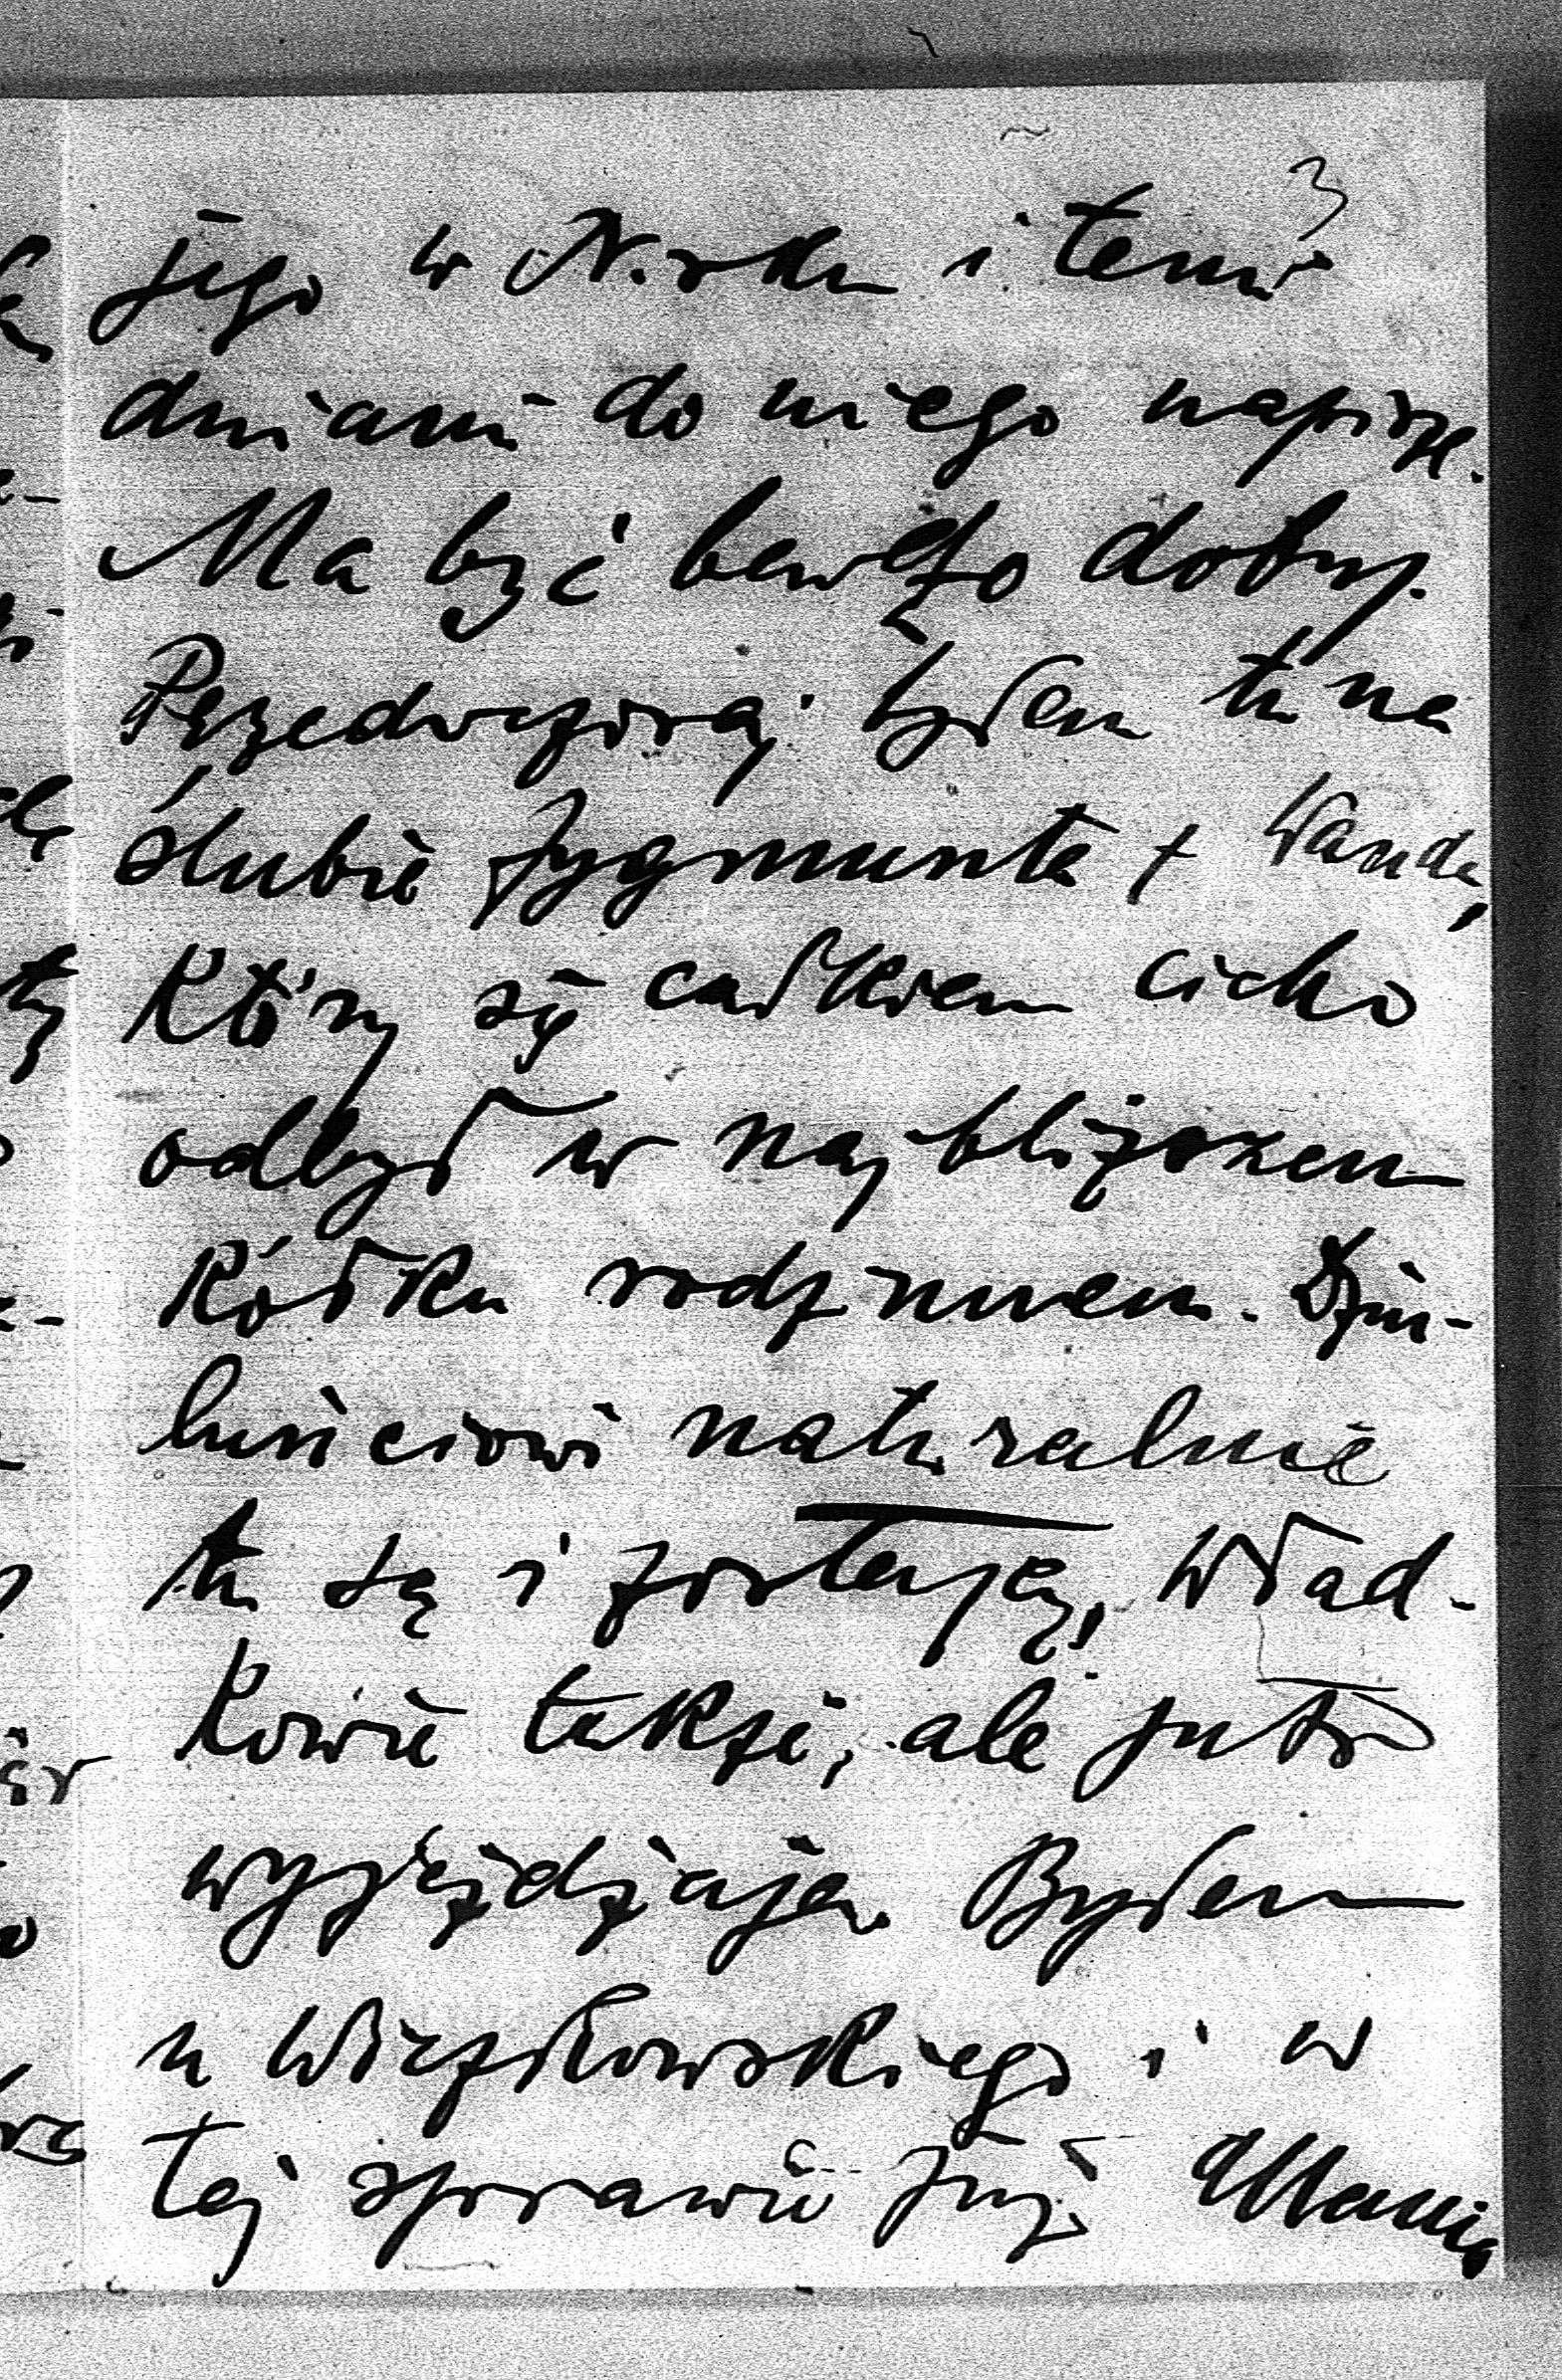 3
jego w N. roku i temi
dniami do niego napiszę.
Ma być bardzo dobry.
Przedwczoraj byłem tu na
ślubie Zygmunta z Wandą,
który się całkiem cicho
odbył w najbliższem
kółku rodzinnem.
naturalnie
tu są i zostają, Wład-
kowie także, ale jutro
wyjeżdżają. Byłem
u Wiczkowskiego i w
tej sprawie już Mamię